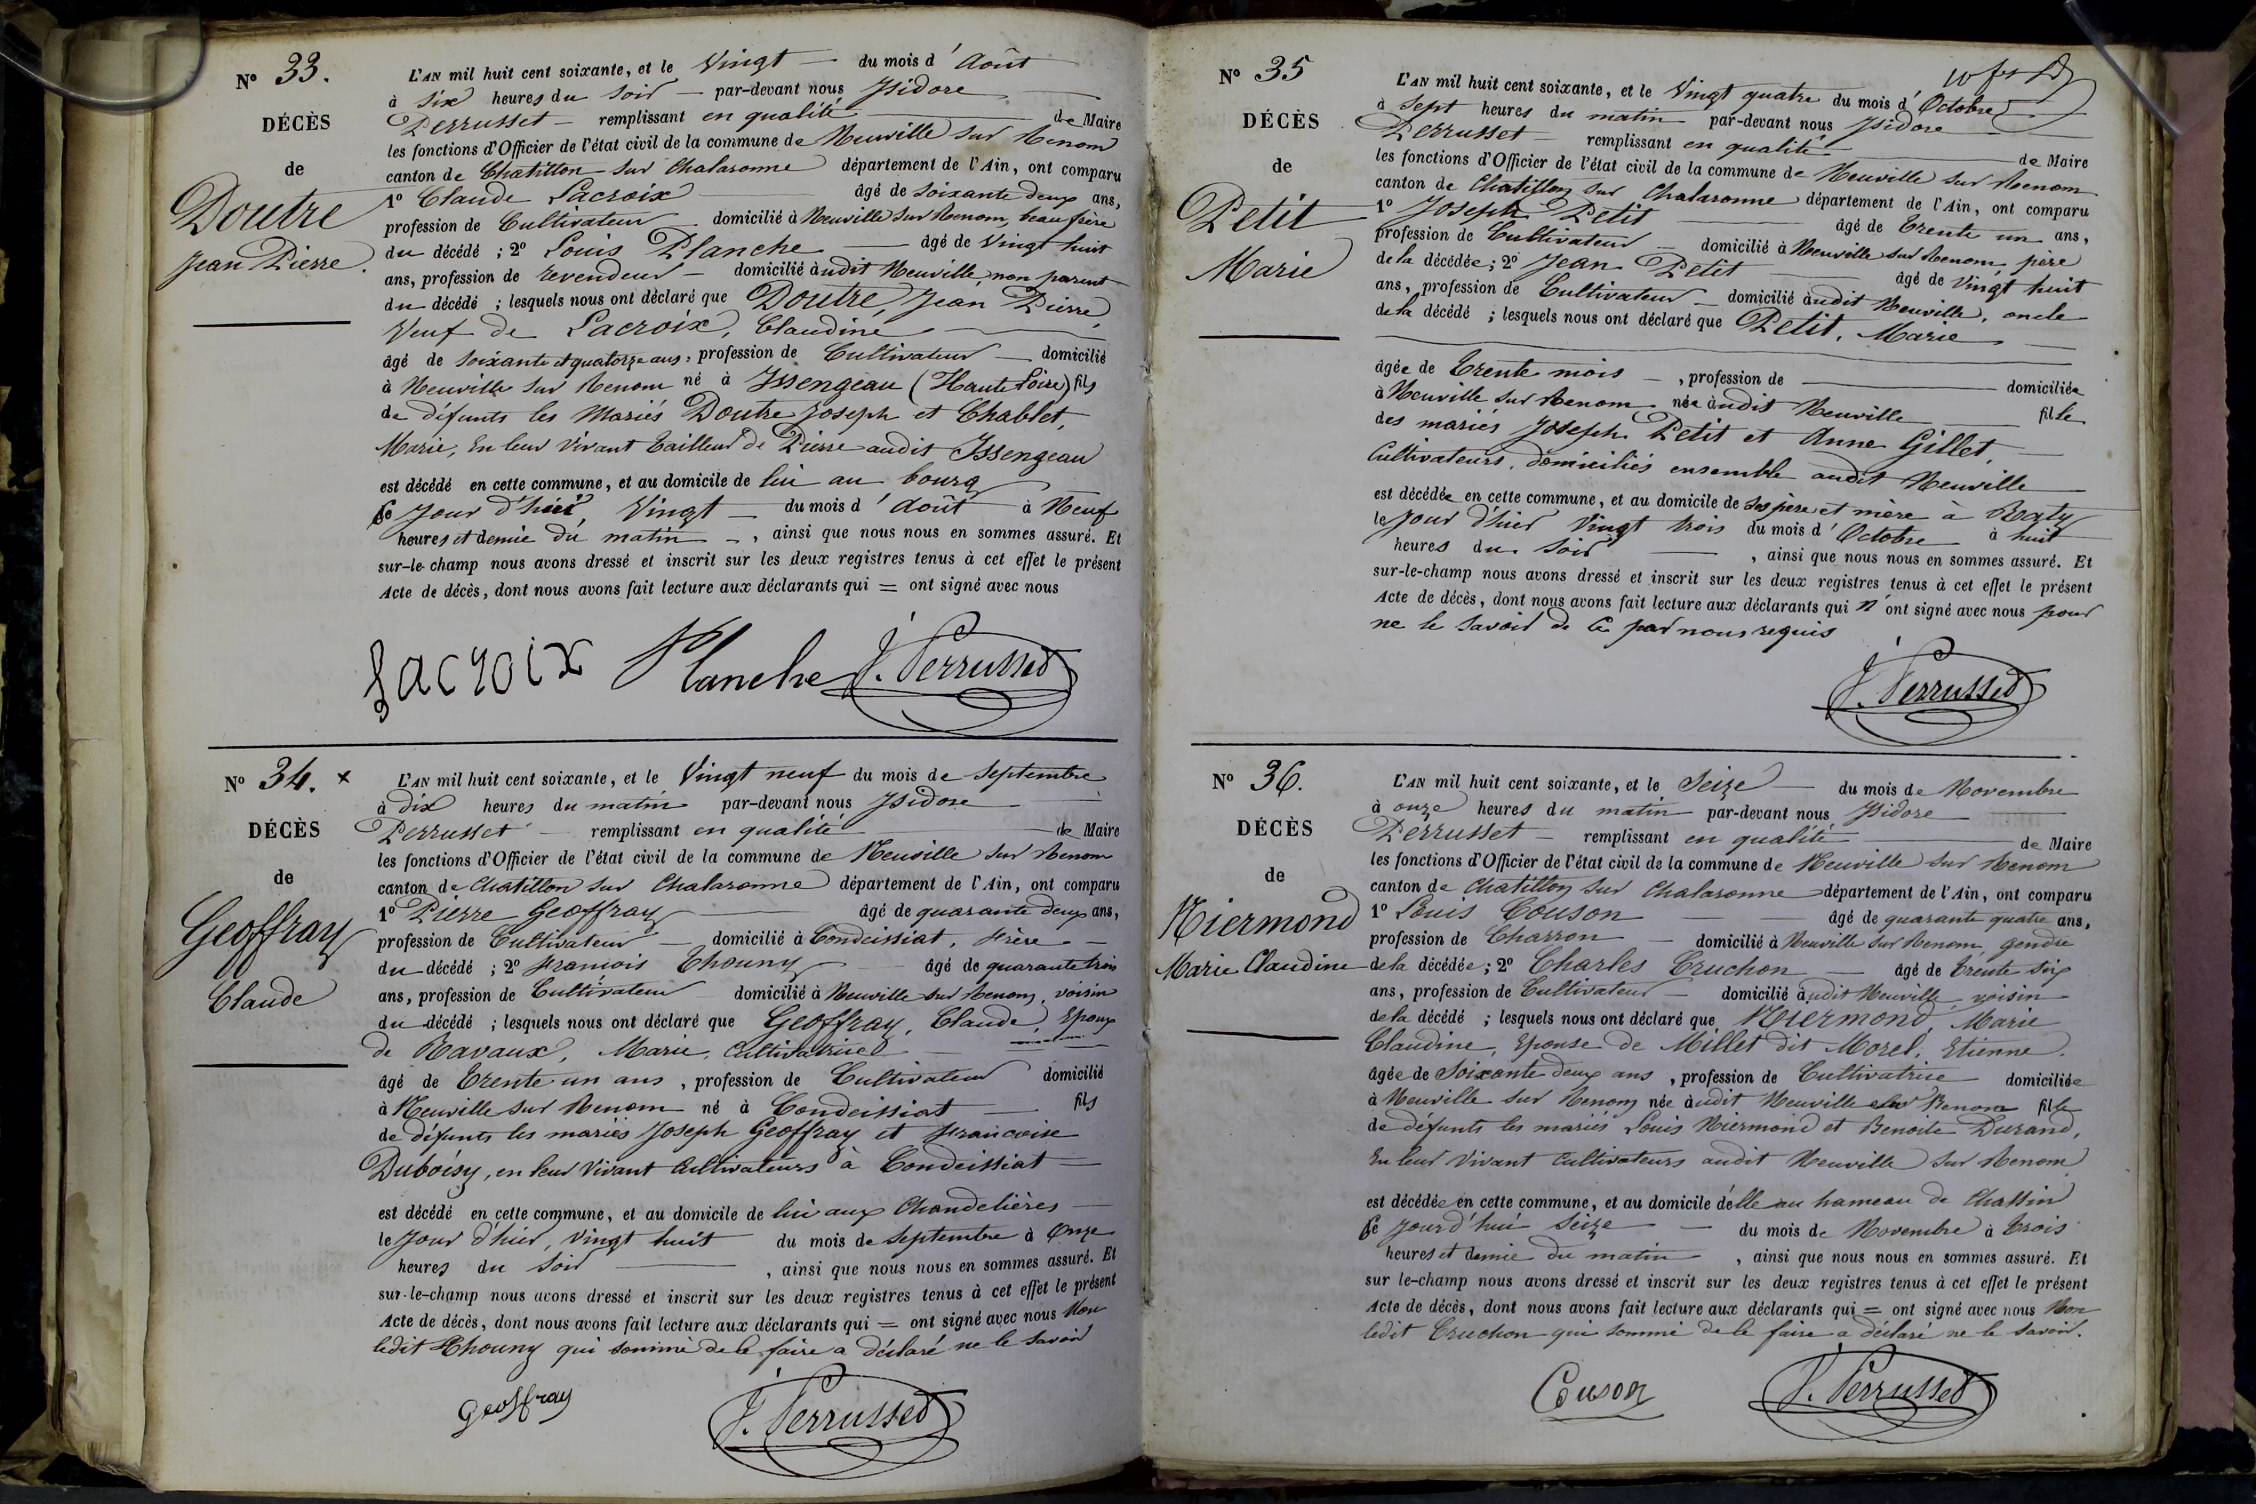 N° 33.
DÉCÈS
de
Doutre
Jean Pierre.
L'AN mil huit cent soixante, et le Vingt du mois d'Août
à six heures du soir par-devant nous Isidore
Perrusset remplissant en qualité de Maire
les fonctions d'Officier de l'état civil de la commune de Neuville sur Renom
canton de Chatillon sur Chalaronne département de l'Ain, ont comparu
1° Claude Lacroix âgé de soixante deux ans,
profession de Cultivateur domicilié à Neuville sur Renom, beau frère
du décédé ; 2° Louis Planche âgé de vingt huit
ans, profession de revendeur domicilié audit Neuville non parent
du décédé ; lesquels nous ont déclaré que Doutre, Jean Pierre,
Veuf de Lacroix, Claudine
âgé de soixante et quatorze ans, profession de Cultivateur domicilié
à Neuville sur Renom né à Issengeau (Haute Loire) fils
de défunts les Mariés Doutre Joseph et Chablet,
Marie, en leur vivant tailleur de Pierre audit Issengeau
est décédé en cette commune, et au domicile de lui au bourg
Ce jour d'hui Vingt du mois d'Août à Neuf
heures et demie du matin, ainsi que nous nous en sommes assuré. Et
sur-le-champ nous avons dressé et inscrit sur les deux registres tenus à cet effet le présent
Acte de décès, dont nous avons fait lecture aux déclarants qui = ont signé avec nous
Lacroix Planche J. Perrusset
N° 34. x
DÉCÈS
de
Geoffray
Claude
L'AN mil huit cent soixante, et le Vingt neuf du mois de Septembre
à dix heures du matin par-devant nous Isidore
Perrusset remplissant en qualité de Maire
les fonctions d'Officier de l'état civil de la commune de Neuville sur Renom
canton de Chatillon sur Chalaronne département de l'Ain, ont comparu
1° Pierre Geoffray âgé de quarante deux ans,
profession de Cultivateur domicilié à Condeissiat, frère
du décédé ; 2° François Thouny âgé de quarante trois
ans, profession de Cultivateur domicilié à Neuville sur Renom, voisin
du décédé ; lesquels nous ont déclaré que Geoffray, Claude, Epoux
de Ravaux, Marie, Cultivatrice
âgé de trente un ans, profession de Cultivateur domicilié
à Neuville sur Renom né à Condeissiat fils
de défunts les mariés Joseph Geoffray et Françoise
Duboisy, en leur vivant Cultivateurs à Condeissiat
est décédé en cette commune, et au domicile de lui aux Chandelières
le Jour d'hier, vingt huit du mois de Septembre à Onze
heures du soir, ainsi que nous nous en sommes assuré. Et
sur-le-champ nous avons dressé et inscrit sur les deux registres tenus à cet effet le présent
Acte de décès, dont nous avons fait lecture aux déclarants qui = ont signé avec nous Non
ledit Thouny qui sommé de le faire a déclaré ne le savoir
Geoffray J. Perrusset
N° 35
DÉCÈS
de
Petit
Marie
L'AN mil huit cent soixante, et le Vingt quatre du mois d'Octobre
à Sept heures du matin par-devant nous Isidore
Perrusset remplissant en qualité de Maire
les fonctions d'Officier de l'état civil de la commune de Neuville sur Renom
canton de Chatillon sur Chalaronne département de l'Ain, ont comparu
1° Joseph Petit âgé de trente un ans,
profession de Cultivateur domicilié à Neuville sur Renom père
de la décédée ; 2° Jean Petit âgé de vingt huit
ans, profession de Cultivateur domicilié audit Neuville, oncle
de la décédé ; lesquels nous ont déclaré que Petit, Marie
âgée de trente mois, profession de domiciliée
à Neuville sur Renom née audit Neuville fille
des mariés Joseph Petit et Anne Gillet,
Cultivateurs, domiciliés ensemble audit Neuville
est décédée en cette commune, et au domicile de ses père et mère à
le Jour d'hier Vingt trois du mois d'Octobre à huit
heures du soir, ainsi que nous nous en sommes assuré. Et
sur-le-champ nous avons dressé et inscrit sur les deux registres tenus à cet effet le présent
Acte de décès, dont nous avons fait lecture aux déclarants qui n'ont signé avec nous pour
ne le savoir de ce par nous requis
J. Perrusset
N° 36.
DÉCÈS
de
Niermond
Marie Claudine
L'AN mil huit cent soixante, et le Seize du mois de Novembre
à onze heures du matin par-devant nous Isidore
Perrusset remplissant en qualité de Maire
les fonctions d'Officier de l'état civil de la commune de Neuville sur Renom
canton de Chatillon sur Chalaronne département de l'Ain, ont comparu
1° Louis Couson âgé de quarante quatre ans,
profession de Charron domicilié à Neuville sur Renom, gendre
de la décédée ; 2° Charles Cruchon âgé de trente six
ans, profession de Cultivateur domicilié audit Neuville voisin
de la décédé ; lesquels nous ont déclaré que Niermond, Marie
Claudine, Epouse de Millet dit Morel, Etienne.
âgée de Soixante deux ans, profession de Cultivatrice domiciliée
à Neuville sur Renom née audit Neuville sur Renom fille
de défunts les mariés Louis Niermond et Benoite Durand,
En leur vivant cultivateurs audit Neuville sur Renom
est décédée en cette commune, et au domicile d'elle au hameau de Chassin
Ce Jourd'hui Seize du mois de Novembre à trois
heures et demie du matin, ainsi que nous nous en sommes assuré. Et
sur le-champ nous avons dressé et inscrit sur les deux registres tenus à cet effet le présent
Acte de décès, dont nous avons fait lecture aux déclarants qui = ont signé avec nous Non
ledit Cruchon qui sommé de le faire a déclaré ne le savoir.
Couson J. Perrusset